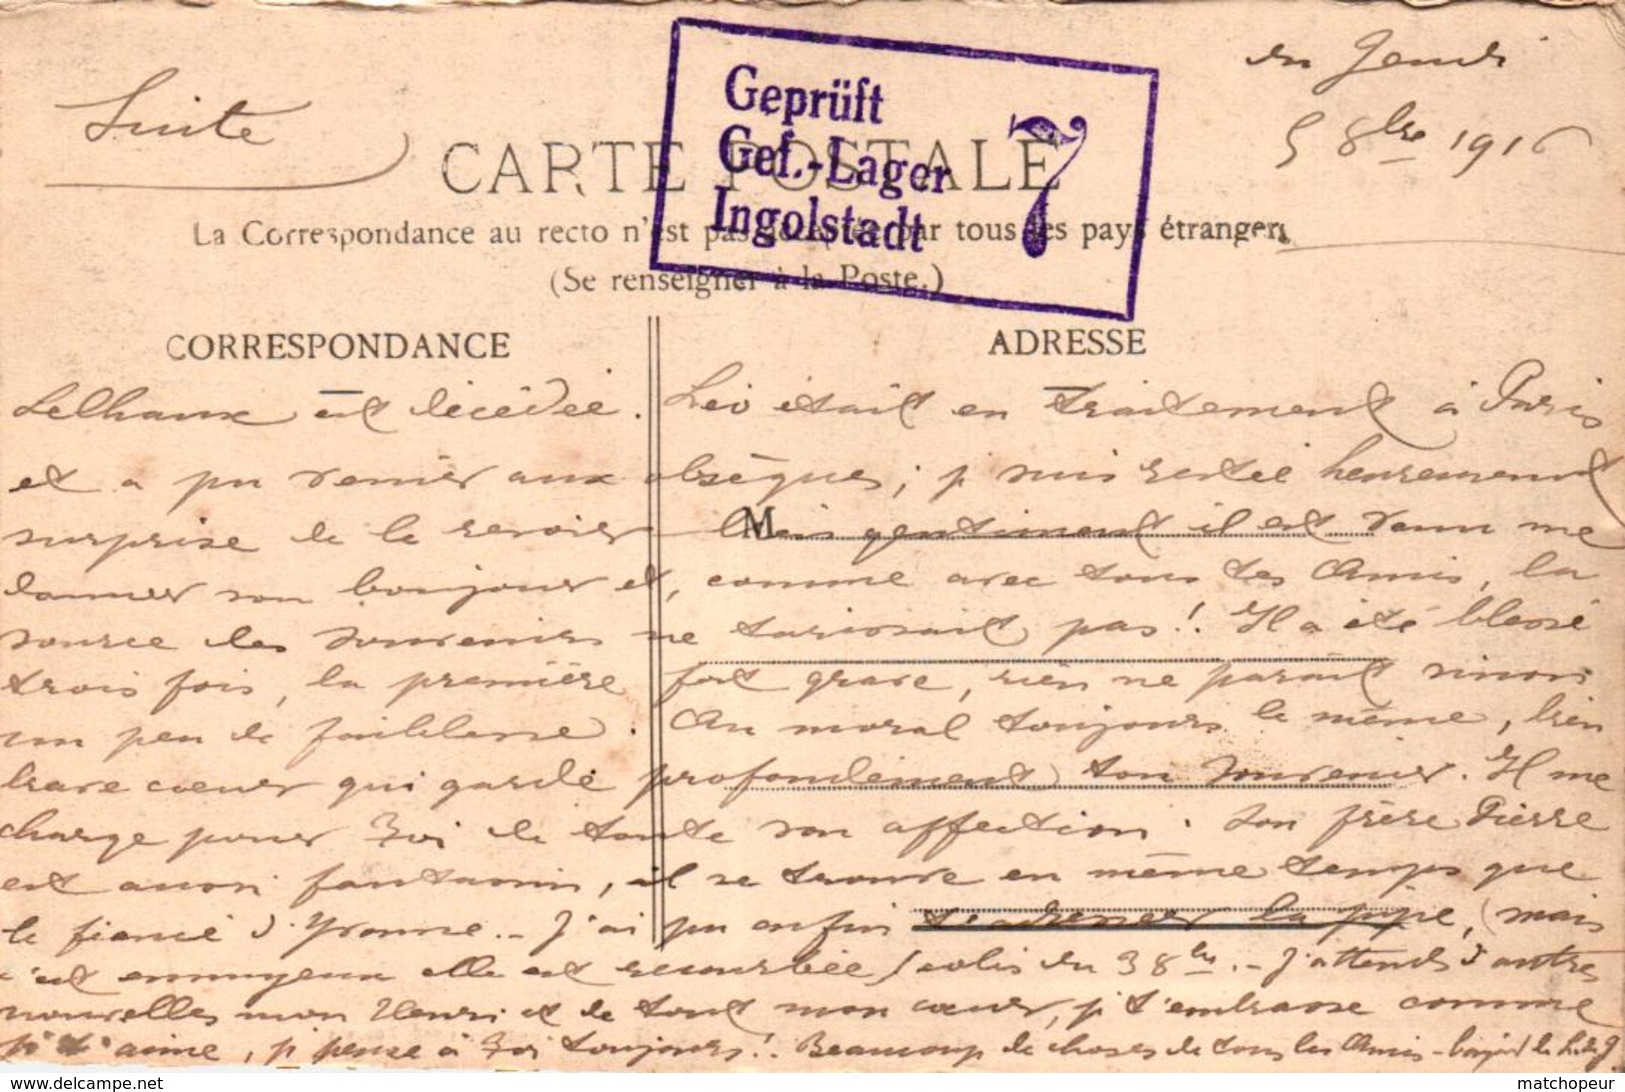 Suite
du Jeudi
5 8bre 1916
Geprüft
Gef.-Lager
Ingolstadt
7
CARTE POSTALE
La Correspondance au recto n'est pas acceptée par tous les pays étrangers
(Se renseigner à la Poste.)
CORRESPONDANCE
ADRESSE
M
Lelhaux est décédée. Léo était en traitement à Paris
et a pu venir aux obsèques; j suis restée heureusement
surprise de le revoir bien gentiment il est venu me
donner son bonjour et, comme avec tous tes Amis, la
source des souvenirs ne tarissait pas! Il a été blessé
trois fois, la première fort grave, rien ne paraît sinon
un peu de faiblesse. Au moral toujours le même, bien
brave cœur qui garde profondément ton souvenir. Il me
charge pour Toi de toute son affection. Son frère Pierre
est aussi fantassin, il se trouve en même temps que
le fiancé d'Yvonne. - J'ai pu enfin t'adresser la pipe, (mais
c'est ennuyeux elle est recourbée) colis du 3 8bre. - J'attends d'autres
nouvelles mon Henri et de tout mon cœur, j t'embrasse comme
j t'aime, j pense à Toi toujours! Beaucoup de choses de tous les Amis - bonjour de
matchopeur
www.delcampe.net